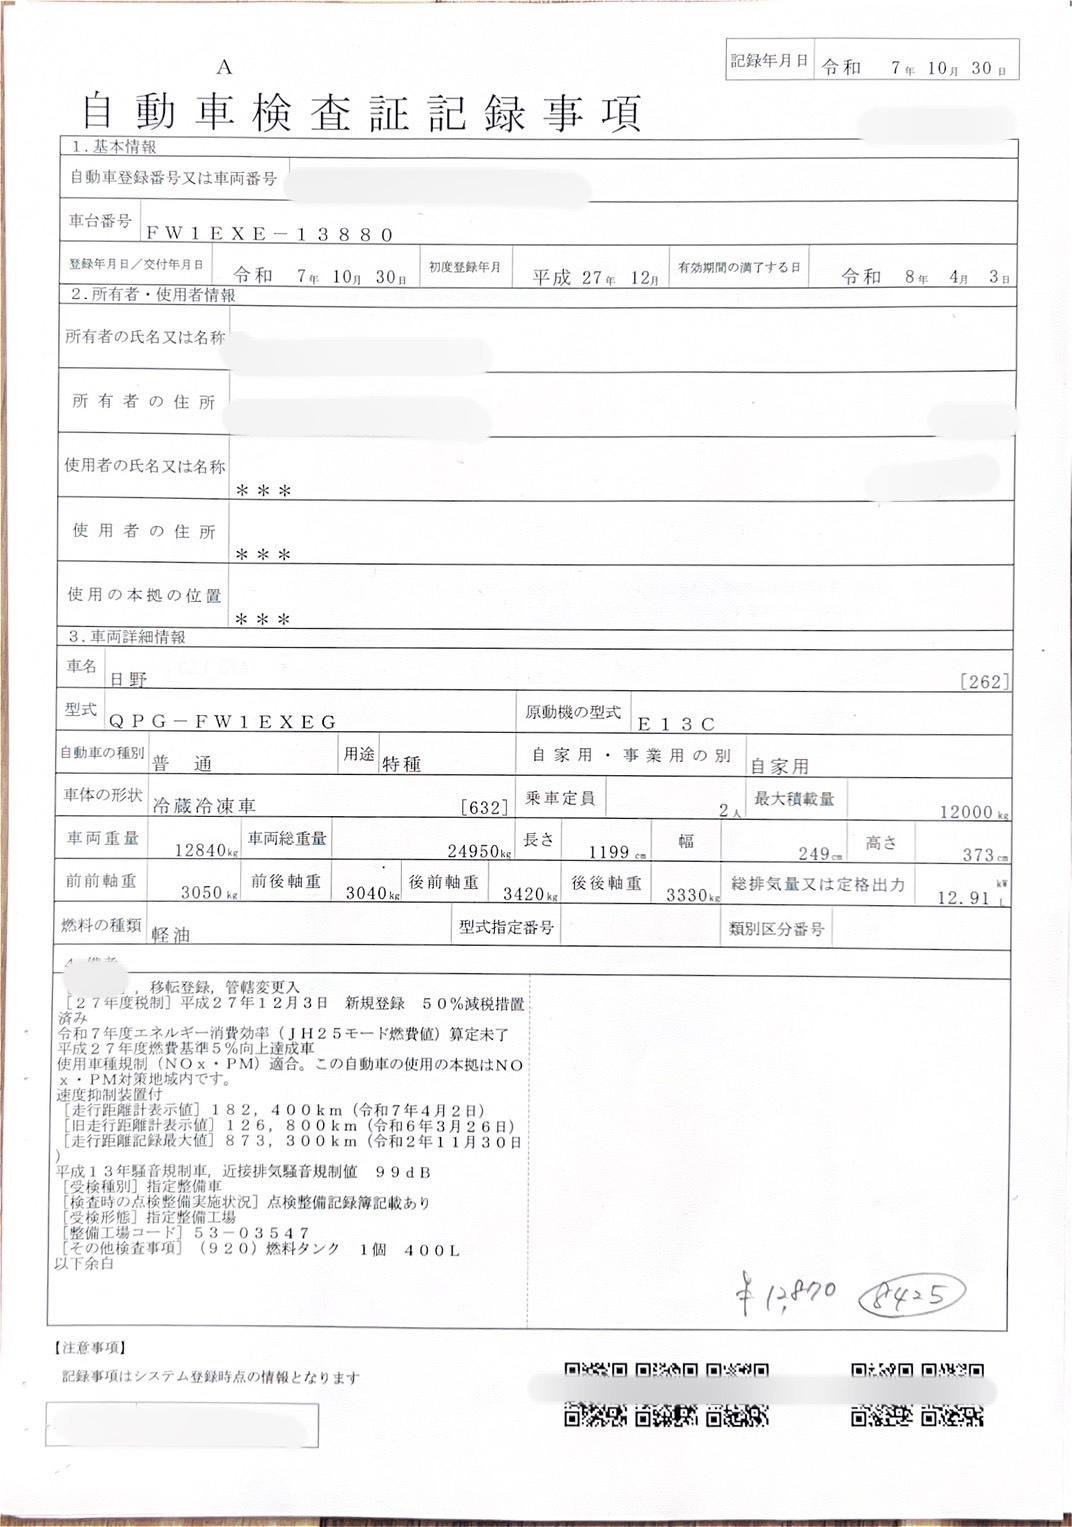 記録年月日 令和 7年 10月 30日
A
自動車検査証記録事項
1.基本情報
自動車登録番号又は車両番号
車台番号 FW1EXE-13880
登録年月日/交付年月日 令和 7年 10月 30日 初度登録年月 平成 27年 12月 有効期間の満了する日 令和 8年 4月 3日
2.所有者・使用者情報
所有者の氏名又は名称
所有者の住所
使用者の氏名又は名称 ***
使用者の住所 ***
使用の本拠の位置 ***
3.車両詳細情報
車名 日野 [262]
型式 QPG-FW1EXEG 原動機の型式 E13C
自動車の種別 普通 用途 特種 自家用・事業用の別 自家用
車体の形状 冷蔵冷凍車 [632] 乗車定員 2人 最大積載量 12000kg
車両重量 12840kg 車両総重量 24950kg 長さ 1199cm 幅 249cm 高さ 373cm
前前軸重 3050kg 前後軸重 3040kg 後前軸重 3420kg 後後軸重 3330kg 総排気量又は定格出力 12.91 kW L
燃料の種類 軽油 型式指定番号 類別区分番号
4.備考
,移転登録,管轄変更入
[27年度税制]平成27年12月3日 新規登録 50%減税措置
済み
令和7年度エネルギー消費効率(JH25モード燃費値)算定未了
平成27年度燃費基準5%向上達成車
使用車種規制(NOx・PM)適合。この自動車の使用の本拠はNO
x・PM対策地域内です。
速度抑制装置付
[走行距離計表示値]182,400km(令和7年4月2日)
[旧走行距離計表示値]126,800km(令和6年3月26日)
[走行距離記録最大値]873,300km(令和2年11月30日
)
平成13年騒音規制車,近接排気騒音規制値 99dB
[受検種別]指定整備車
[検査時の点検整備実施状況]点検整備記録簿記載あり
[受検形態]指定整備工場
[整備工場コード]53-03547
[その他検査事項](920)燃料タンク 1個 400L
以下余白
¥12,870 8425
【注意事項】
記録事項はシステム登録時点の情報となります